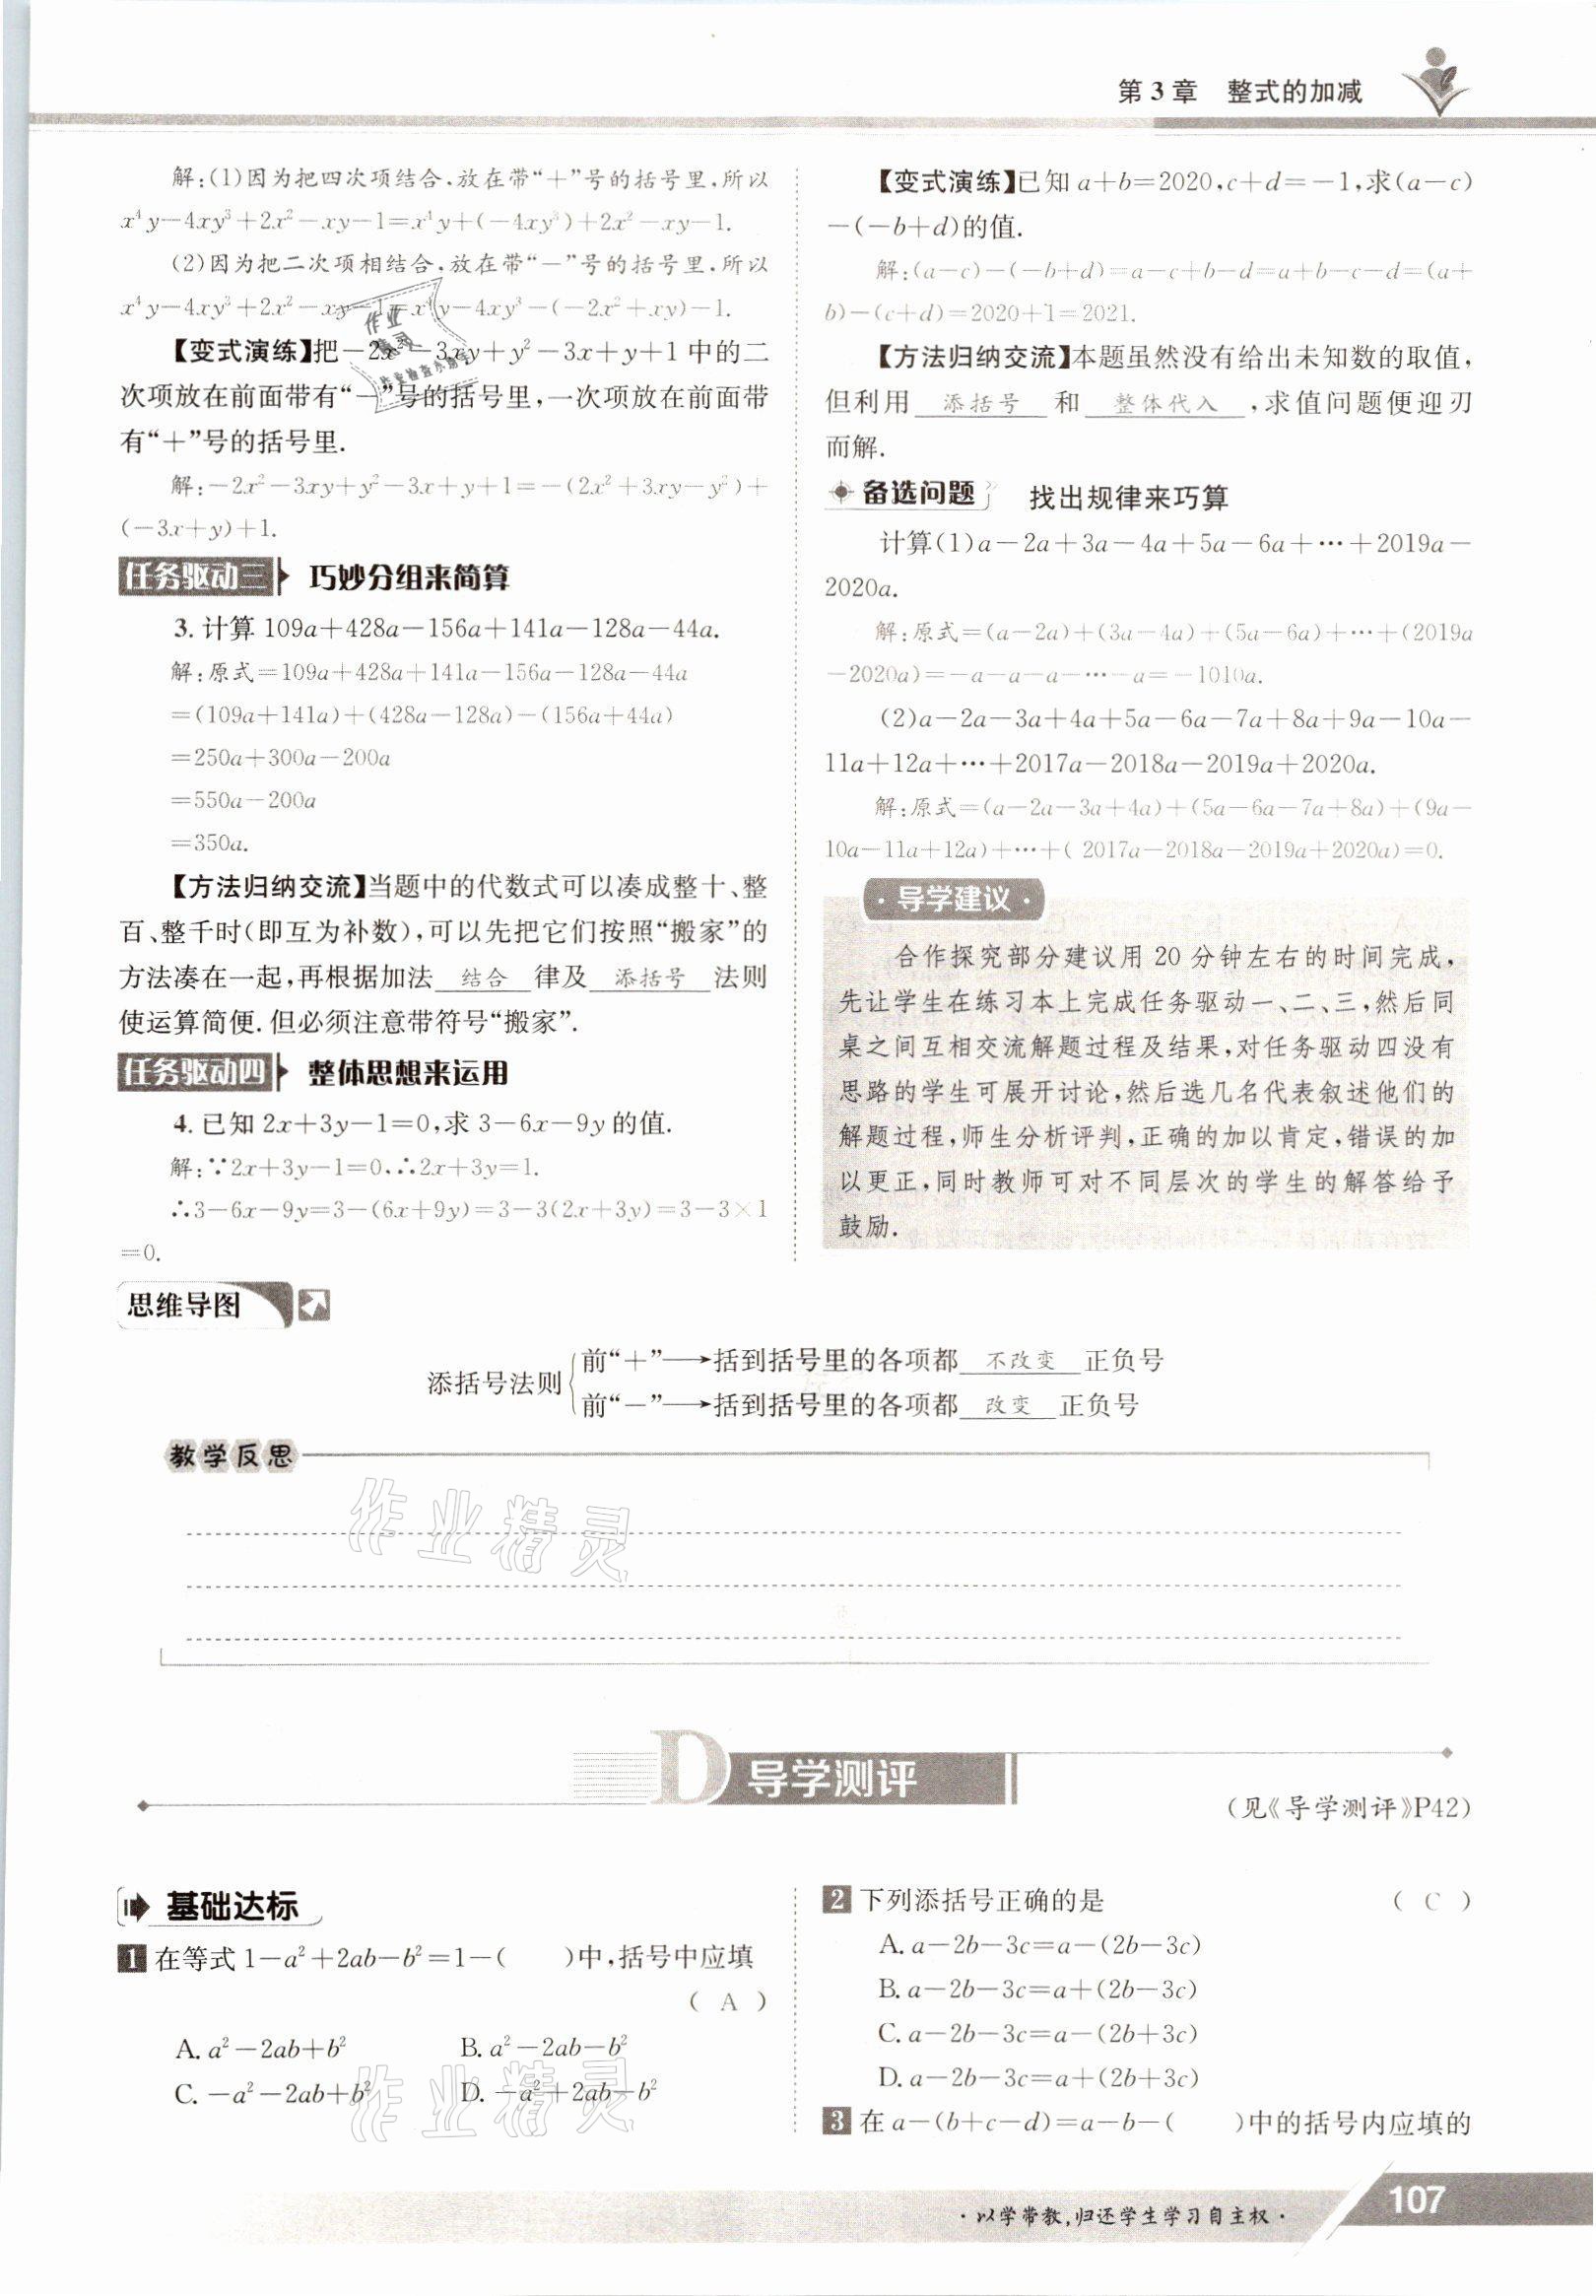 第3章 整式的加减
解:(1)因为把四次项结合,放在带“+”号的括号里,所以
x⁴y-4xy³+2x²-xy-1=x⁴y+(-4xy³)+2x²-xy-1.
(2)因为把二次项相结合,放在带“-”号的括号里,所以
x⁴y-4xy³+2x²-xy-1=x⁴y-4xy³-(-2x²+xy)-1.
【变式演练】把-2x²-3xy+y²-3x+y+1中的二
次项放在前面带有“-”号的括号里,一次项放在前面带
有“+”号的括号里.
解:-2x²-3xy+y²-3x+y+1=-(2x²+3xy-y²)+
(-3x+y)+1.
任务驱动三 巧妙分组来简算
3. 计算 109a+428a-156a+141a-128a-44a.
解:原式=109a+428a+141a-156a-128a-44a
=(109a+141a)+(428a-128a)-(156a+44a)
=250a+300a-200a
=550a-200a
=350a.
【方法归纳交流】当题中的代数式可以凑成整十、整
百、整千时(即互为补数),可以先把它们按照“搬家”的
方法凑在一起,再根据加法 结合 律及 添括号 法则
使运算简便.但必须注意带符号“搬家”.
任务驱动四 整体思想来运用
4. 已知2x+3y-1=0,求3-6x-9y的值.
解:∵2x+3y-1=0,∴2x+3y=1.
∴3-6x-9y=3-(6x+9y)=3-3(2x+3y)=3-3×1
=0.
【变式演练】已知a+b=2020,c+d=-1,求(a-c)
-(-b+d)的值.
解:(a-c)-(-b+d)=a-c+b-d=a+b-c-d=(a+
b)-(c+d)=2020+1=2021.
【方法归纳交流】本题虽然没有给出未知数的取值,
但利用 添括号 和 整体代入 ,求值问题便迎刃
而解.
备选问题 找出规律来巧算
计算(1)a-2a+3a-4a+5a-6a+…+2019a-
2020a.
解:原式=(a-2a)+(3a-4a)+(5a-6a)+…+(2019a
-2020a)=-a-a-a-…-a=-1010a.
(2)a-2a-3a+4a+5a-6a-7a+8a+9a-10a-
11a+12a+…+2017a-2018a-2019a+2020a.
解:原式=(a-2a-3a+4a)+(5a-6a-7a+8a)+(9a-
10a-11a+12a)+…+( 2017a-2018a-2019a+2020a)=0.
·导学建议·
合作探究部分建议用20分钟左右的时间完成,
先让学生在练习本上完成任务驱动一、二、三,然后同
桌之间互相交流解题过程及结果,对任务驱动四没有
思路的学生可展开讨论,然后选几名代表叙述他们的
解题过程,师生分析评判,正确的加以肯定,错误的加
以更正,同时教师可对不同层次的学生的解答给予
鼓励.
思维导图
添括号法则
前“+”→括到括号里的各项都 不改变 正负号
前“-”→括到括号里的各项都 改变 正负号
教学反思
作业精灵
D 导学测评
(见《导学测评》P42)
基础达标
1 在等式1-a²+2ab-b²=1-(  )中,括号中应填
( A )
A. a²-2ab+b² B. a²-2ab-b²
C. -a²-2ab+b² D. -a²+2ab-b²
作业精灵
2 下列添括号正确的是 ( C )
A. a-2b-3c=a-(2b-3c)
B. a-2b-3c=a+(2b-3c)
C. a-2b-3c=a-(2b+3c)
D. a-2b-3c=a+(2b+3c)
3 在a-(b+c-d)=a-b-(  )中的括号内应填的
·以学带教,归还学生学习自主权·
107